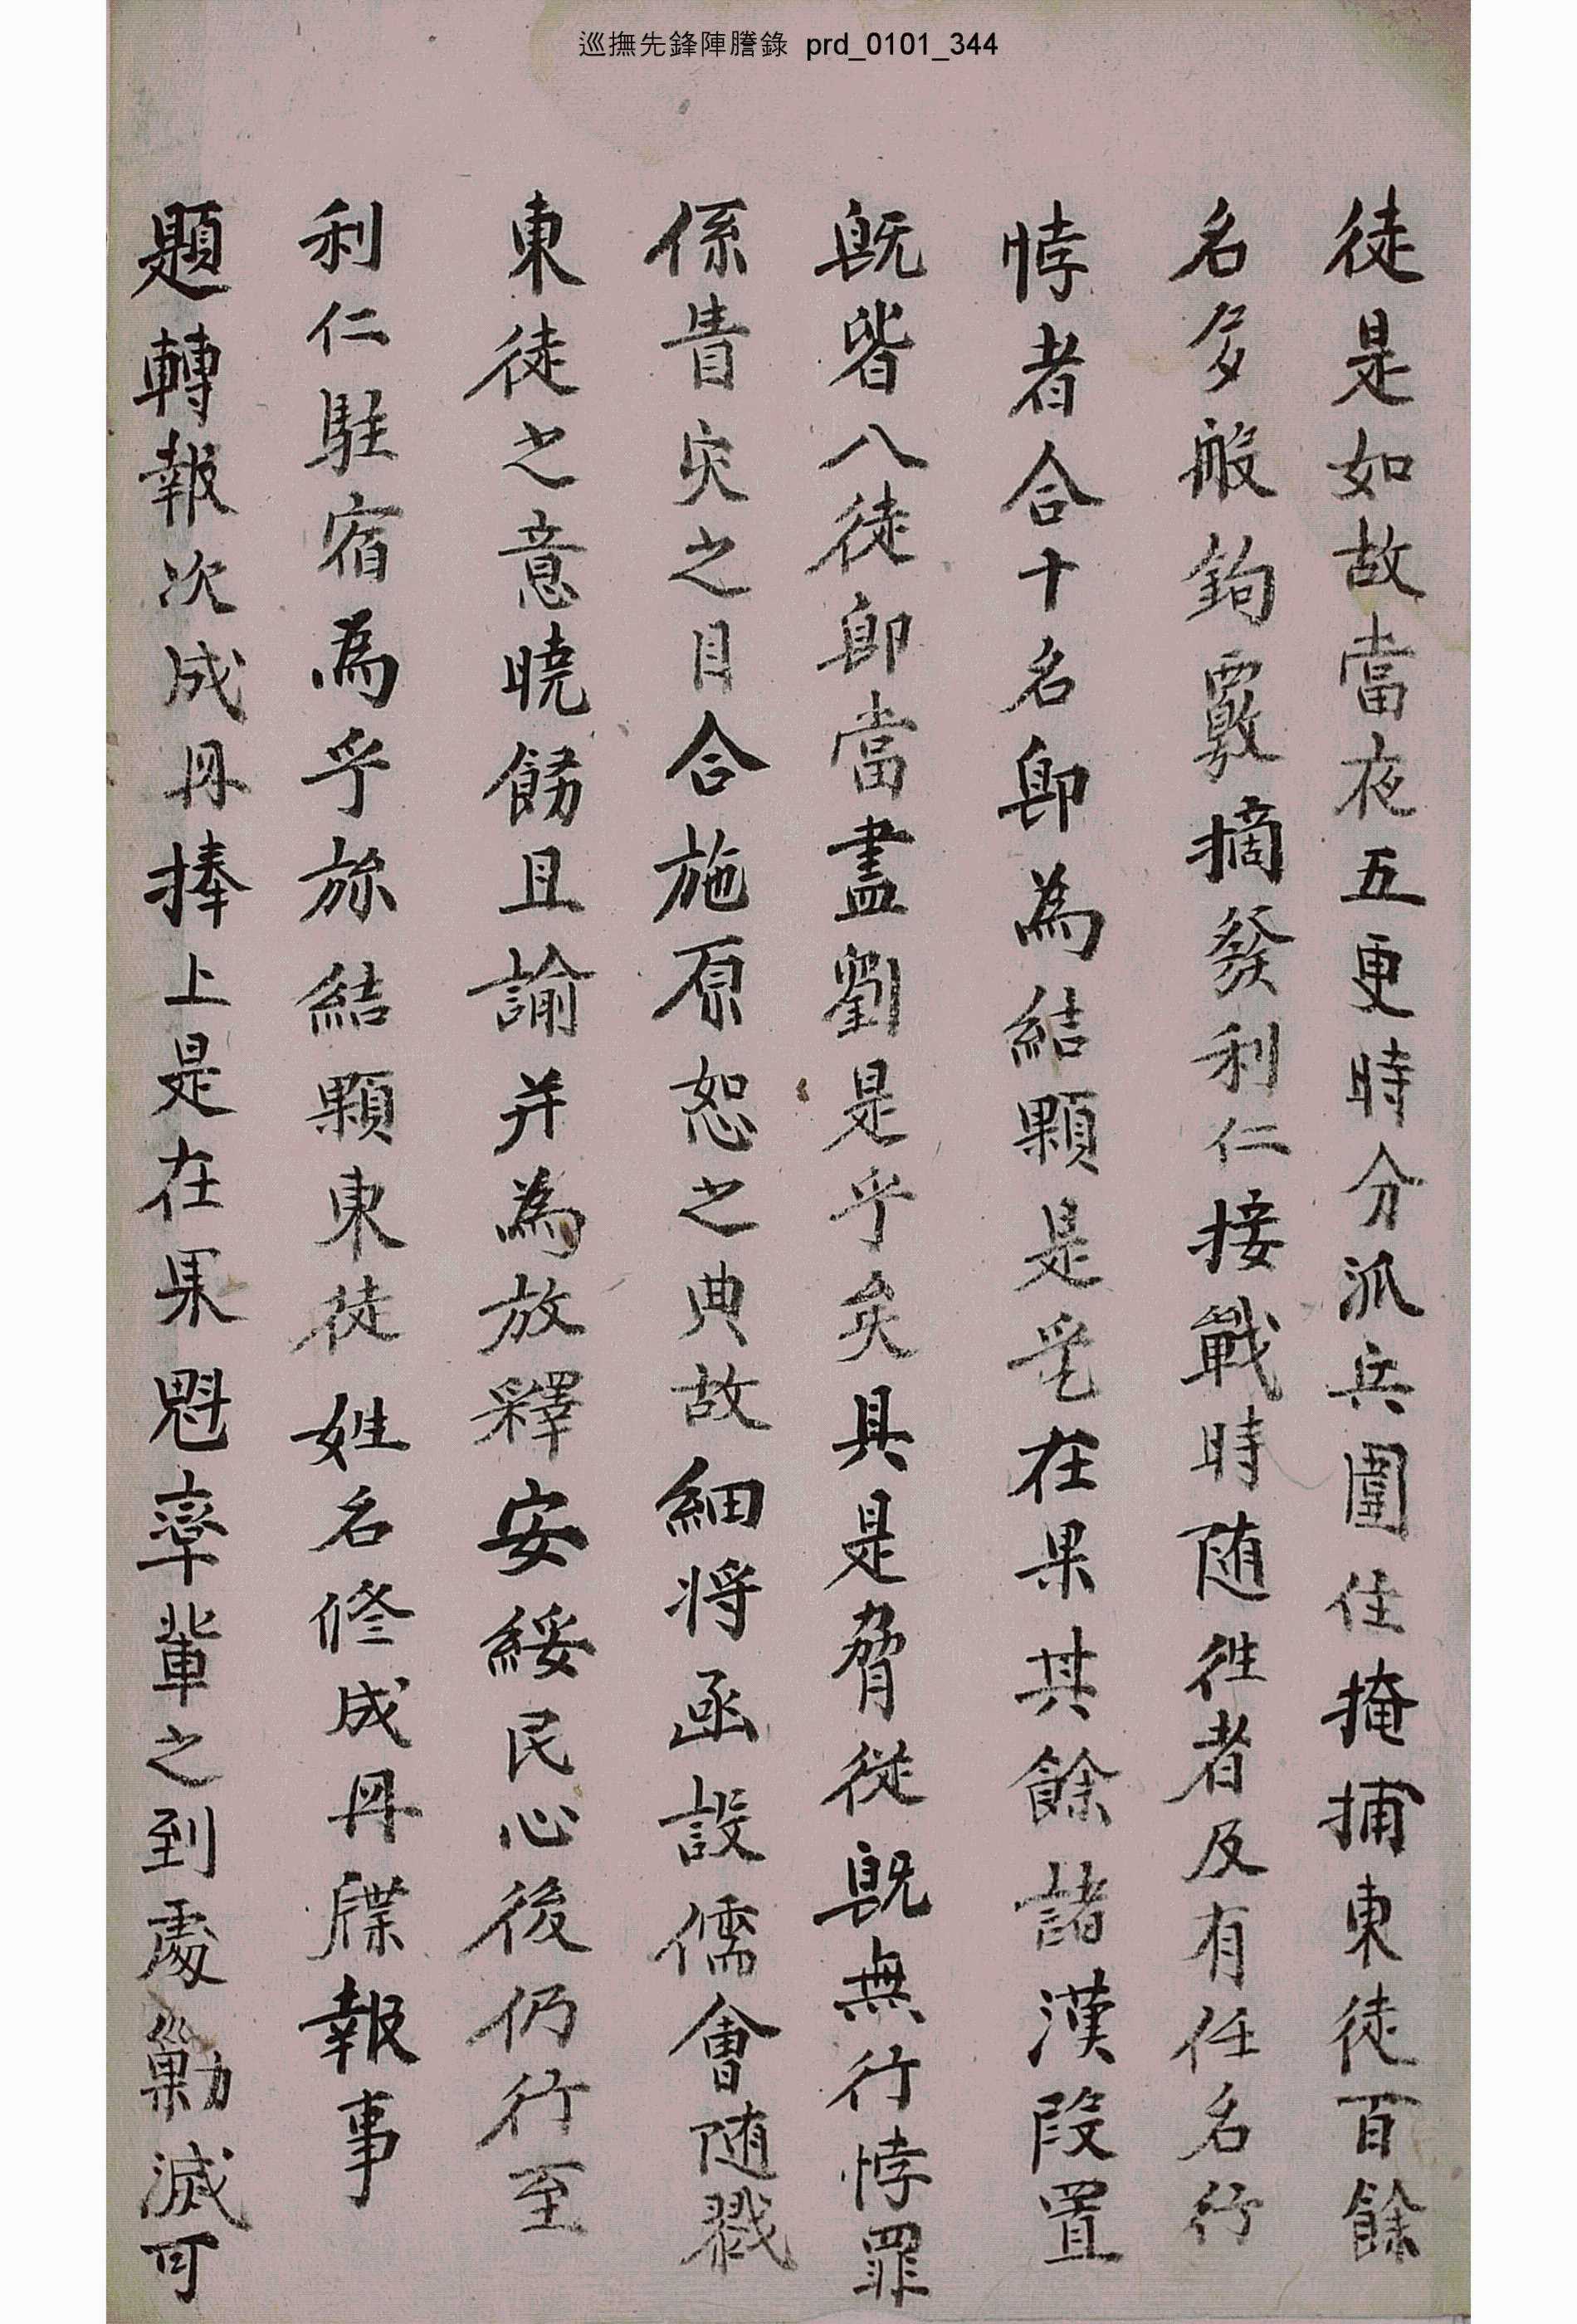 巡撫先鋒陣謄錄 prd_0101_344
徒是如故當夜五更時分派兵圍住掩捕東徒百餘
名多般鉤覈摘發利仁接戰時随徃者及有任名行
悖者合十名卽為結顆是乎在果其餘諸漢段置
旣皆入徒卽當盡劉是乎矣具是脅從旣無行悖罪
係眚灾之目合施原恕之典故細将函設儒會随戮
東徒之意曉飭且諭并為放釋安綏民心後仍行至
利仁駐宿為乎㫆結顆東徒姓名修成冊牒報事
題轉報次成冊捧上是在果魁率輩之到處勦滅可